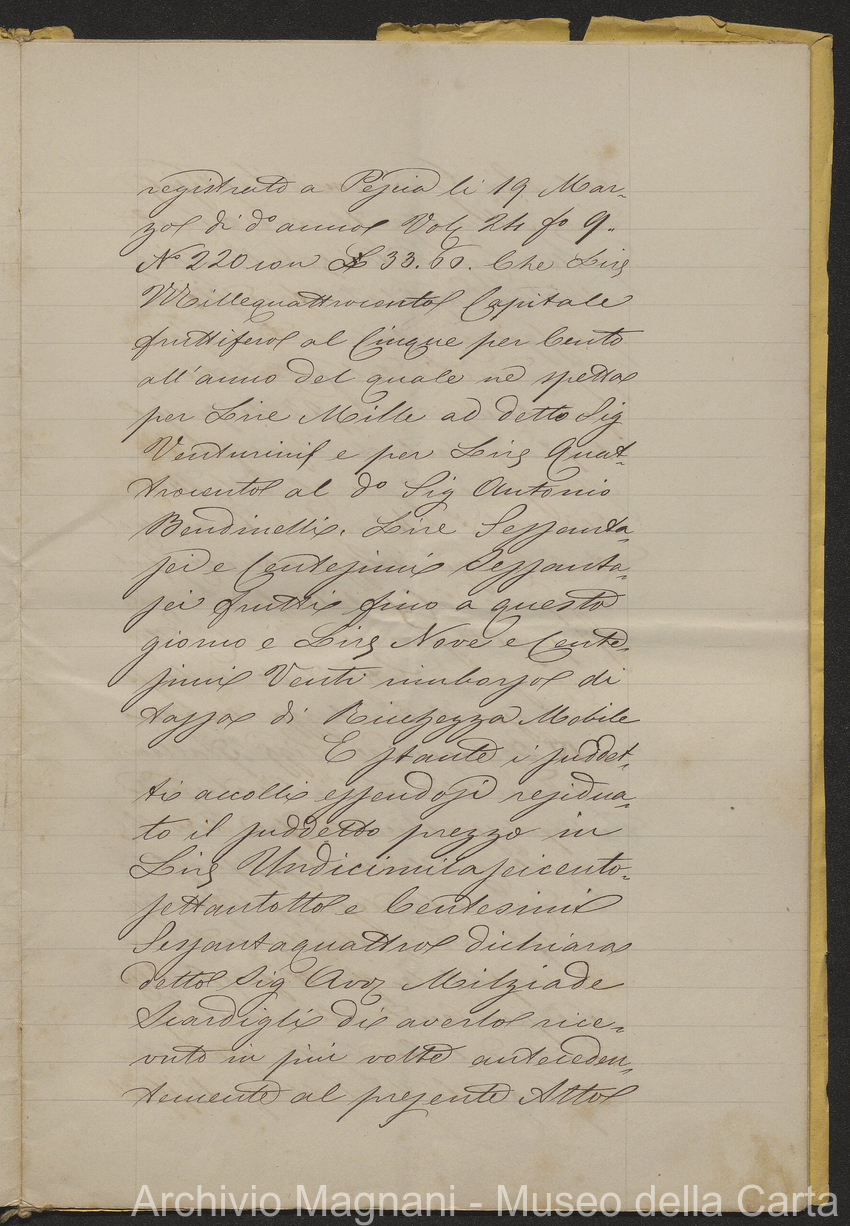 registrato a Pescia li 19 Mar-
zo di do anno Vol. 24 fo 9.
No 220 con L 33.60. Che Lire
Millequattrocento Capitale
fruttifero al Cinque per Cento
all'anno del quale ne spetta
per Lire Mille ad detto Sig
Venturini e per Lire Quat-
trocento al do Sig Antonio
Bendinelli. Lire Sessanta-
sei e Centesimi Sessanta-
sei frutti fino a questo
giorno e Lire Nove e Cente-
simi Venti rimborso di
tassa di Ricchezza Mobile
E stante i suddet-
ti accolli essendosi residua-
to il suddetto prezzo in
Lire Undicimilaseicento-
settantotto e Centesimi
Sessantaquattro dichiara
detto Sig Avv Milziade
Scardigli di averlo rice-
vuto in più volte anteceden-
temente al presente Atto
Archivio Magnani - Museo della Carta